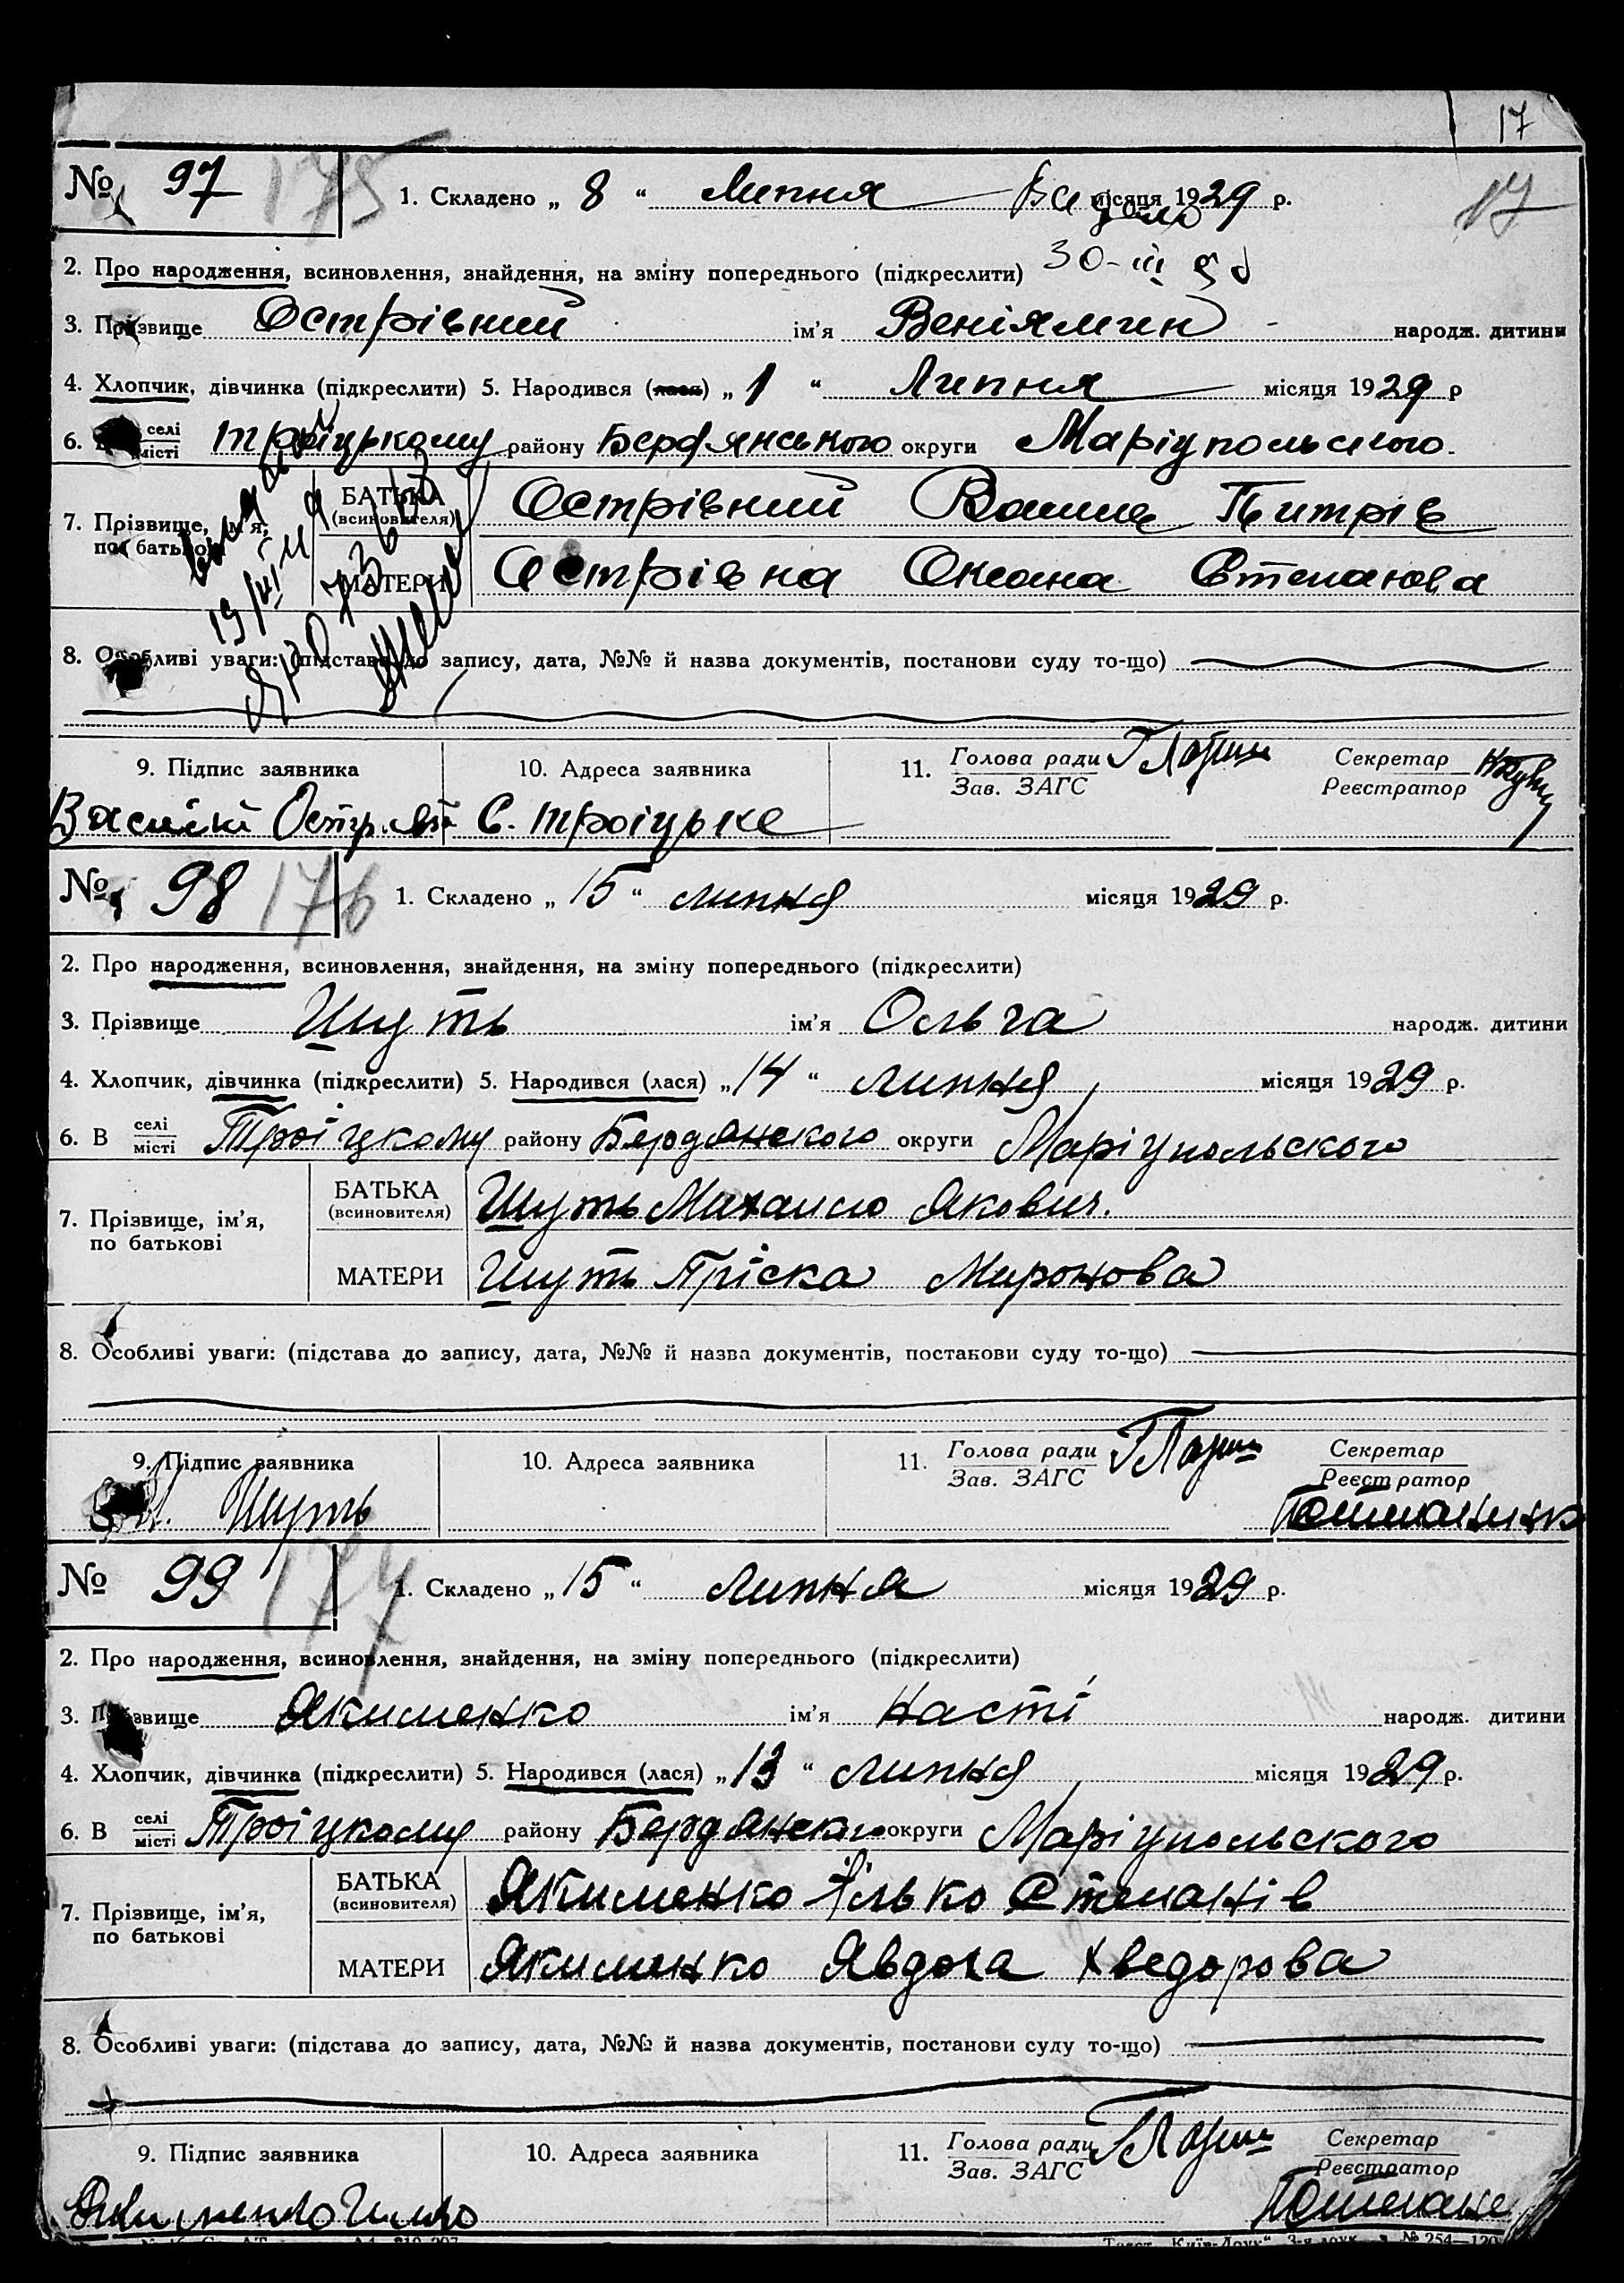 17
№ 97 175 1. Складено „ 8 “ Липня місяця 1929 р. 17
30-III
2. Про народження, всиновлення, знайдення, на зміну попереднього (підкреслити)
3. Прізвище Острівний ім’я Веніямин народж. дитини
4. Хлопчик, дівчинка (підкреслити) 5. Народився (лася) „ 1 “ Липня місяця 1929 р
6. В селі місті Троіцькому району Бердянського округи Маріупольського.
7. Прізвище, ім’я, по батькові БАТЬКА (всиновителя) Острівний Питрів
МАТЕРИ Острівна Оксана Степанова
8. Особливі уваги: (підстава до запису, дата, №№ й назва документів, постанови суду то-що)
9. Підпис заявника 10. Адреса заявника 11. Голова ради Зав. ЗАГС Секретар Реєстратор
с. Троіцьке
№ 98 176 1. Складено „ 15 “ липня місяця 1929 р.
2. Про народження, всиновлення, знайдення, на зміну попереднього (підкреслити)
3. Прізвище Шуть ім’я Ольга народж. дитини
4. Хлопчик, дівчинка (підкреслити) 5. Народився (лася) „ 14 “ липня місяця 1929 р.
6. В селі місті Троіцкому району Бердянского округи Маріупольского
7. Прізвище, ім’я, по батькові БАТЬКА (всиновителя) Шуть Михаило Якович.
МАТЕРИ Шуть Пріска Миронова
8. Особливі уваги: (підстава до запису, дата, №№ й назва документів, постанови суду то-що)
9. Підпис заявника 10. Адреса заявника 11. Голова ради Зав. ЗАГС Секретар Реєстратор
Шуть
№ 99 177 1. Складено „ 15 “ липня місяця 1929 р.
2. Про народження, всиновлення, знайдення, на зміну попереднього (підкреслити)
3. Прізвище Якименко ім’я Насті народж. дитини
4. Хлопчик, дівчинка (підкреслити) 5. Народився (лася) „ 13 “ липня місяця 1929 р.
6. В селі місті Троіцкому району Бердянского округи Маріупольского
7. Прізвище, ім’я, по батькові БАТЬКА (всиновителя) Якименко Ілько Степанів
МАТЕРИ Якименко Явдоха Хведорова
8. Особливі уваги: (підстава до запису, дата, №№ й назва документів, постанови суду то-що)
9. Підпис заявника 10. Адреса заявника 11. Голова ради Зав. ЗАГС Секретар Реєстратор